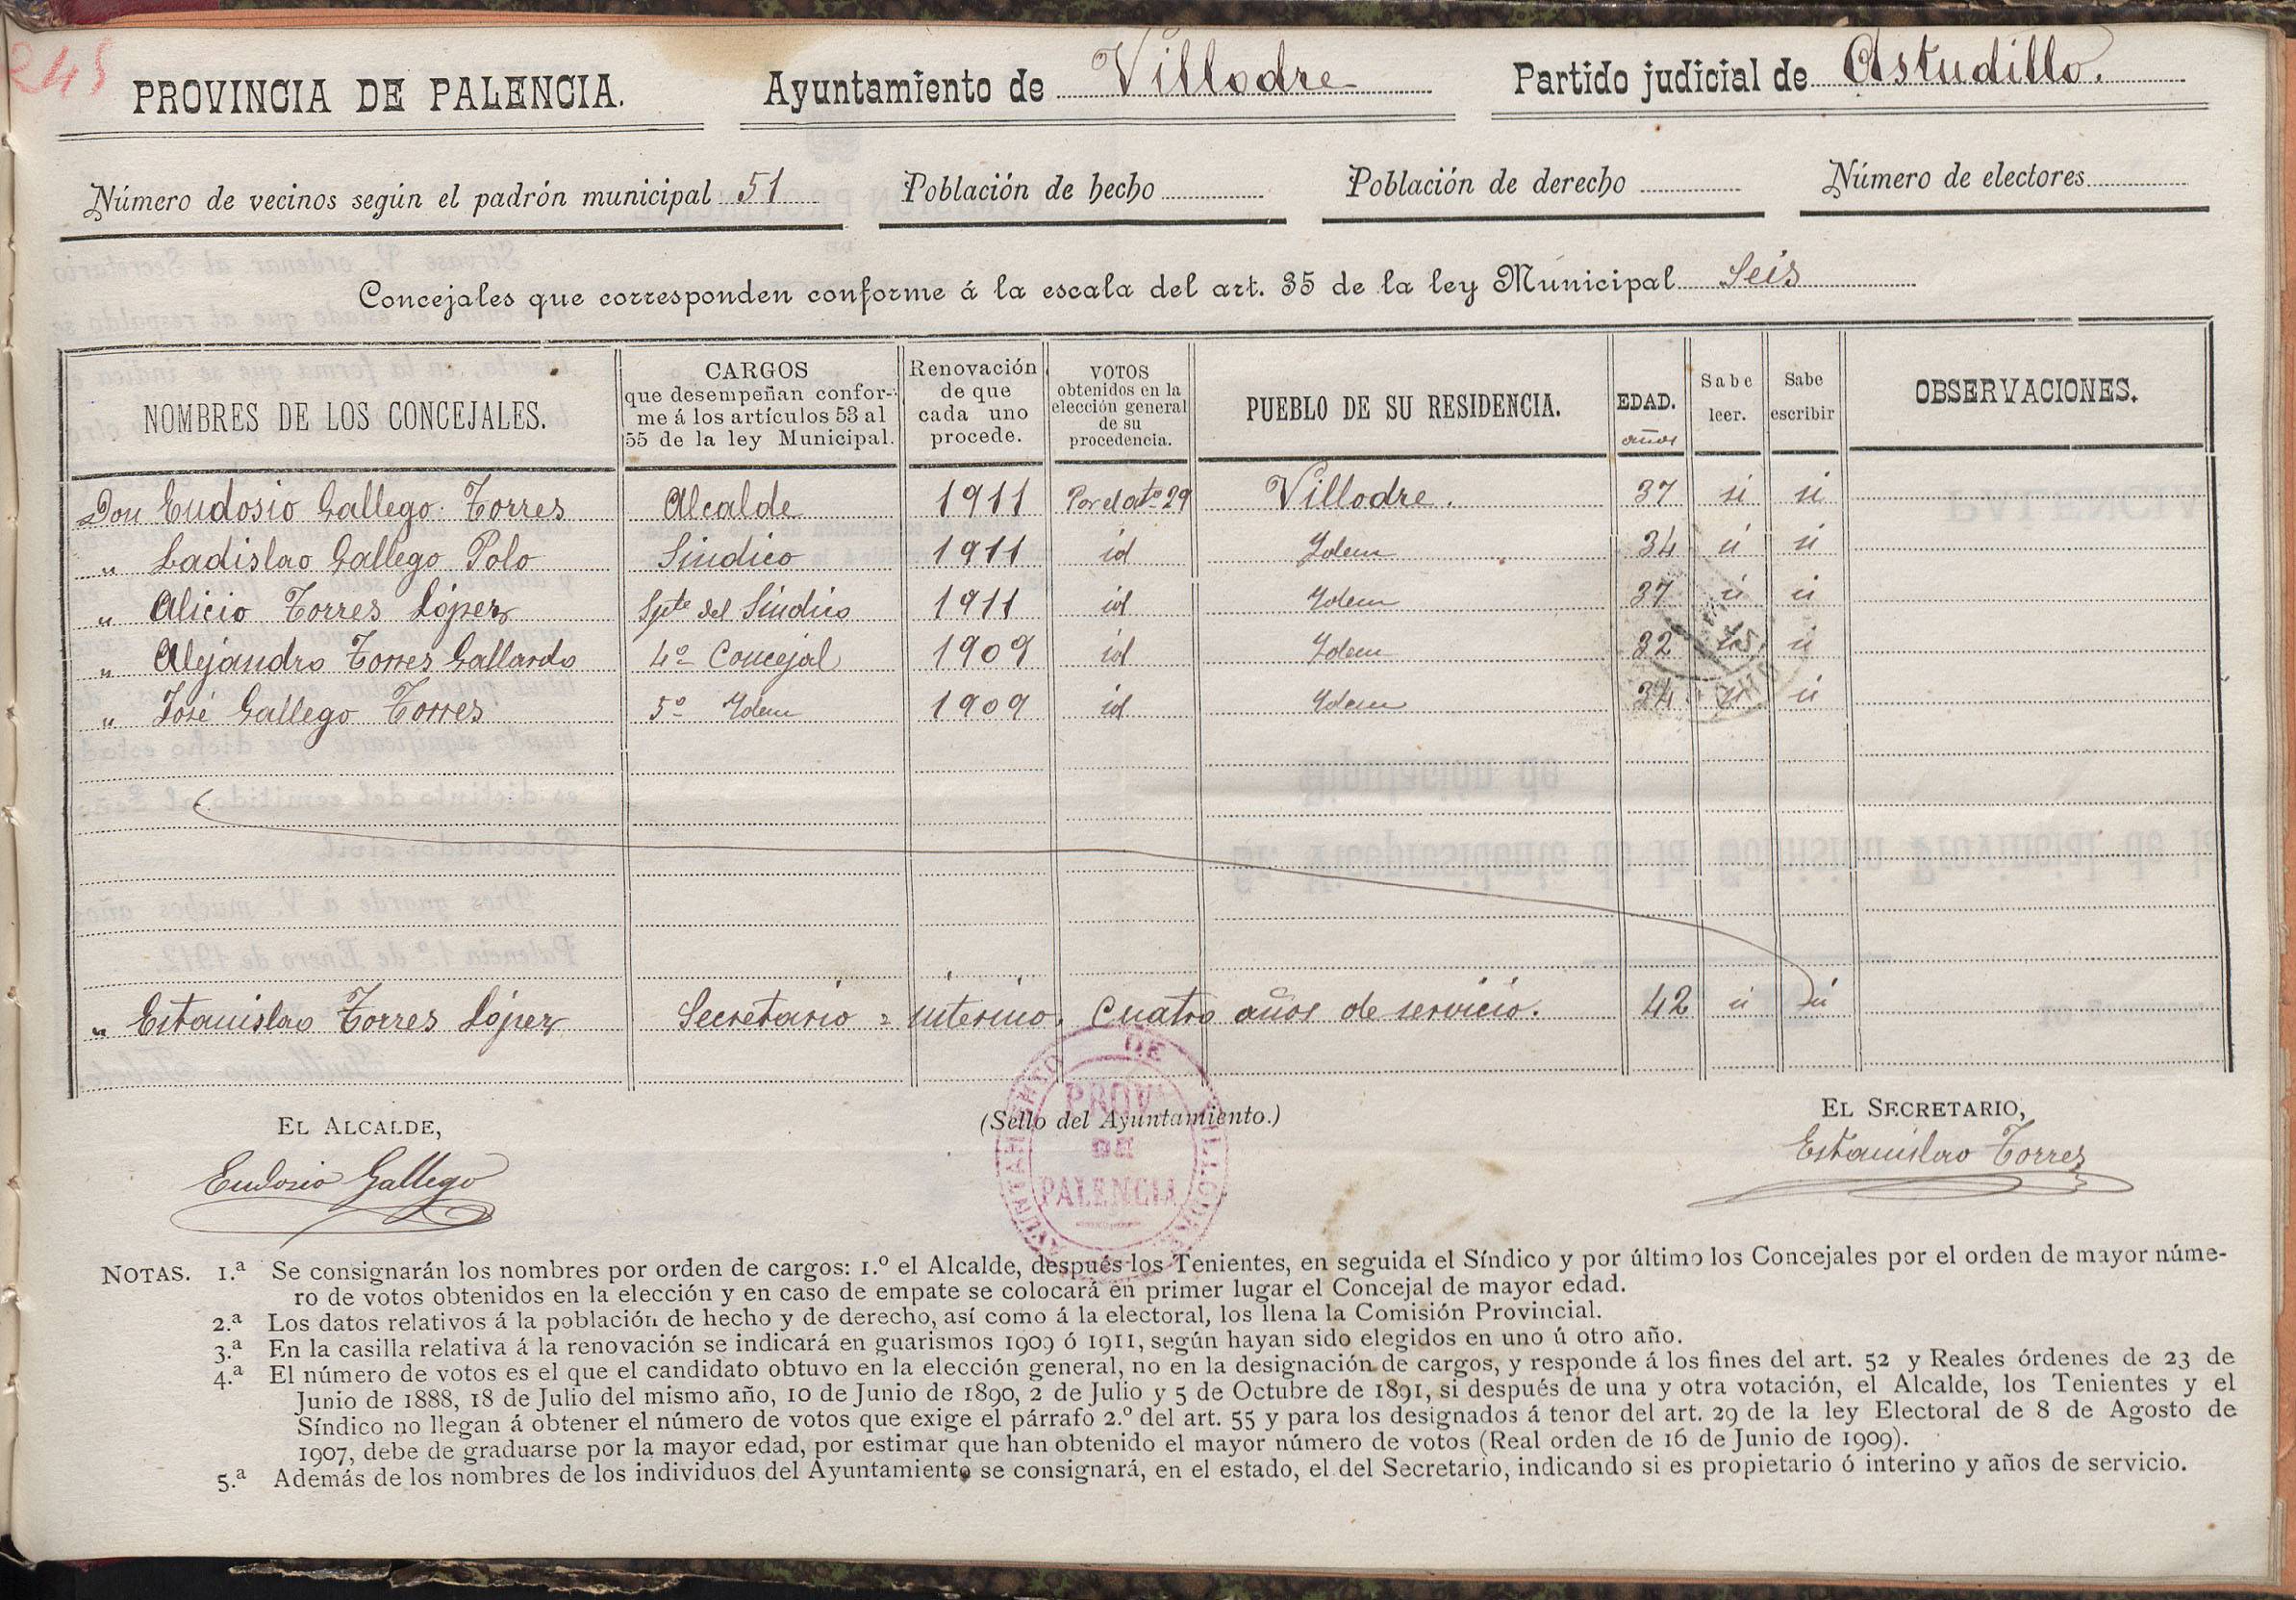 245
PROVINCIA DE PALENCIA. Ayuntamiento de Villodre Partido judicial de Astudillo.
Número de vecinos según el padrón municipal 51 Población de hecho Población de derecho Número de electores
Concejales que corresponden conforme á la escala del art. 35 de la ley Municipal Seis
NOMBRES DE LOS CONCEJALES.
CARGOS
que desempeñan confor-
me á los artículos 53 al
55 de la ley Municipal.
Renovación
de que
cada uno
procede.
VOTOS
obtenidos en la
elección general
de su
procedencia.
PUEBLO DE SU RESIDENCIA.
EDAD.
años
Sabe
leer.
Sabe
escribir
OBSERVACIONES.
Don Eudosio Gallego Torres Alcalde 1911 Por el ato 29 Villodre. 37 si si
" Ladislao Gallego Polo Sindico 1911 id Idem 34 si si
" Alicio Torres López Spte del Sindico 1911 id Idem 37 si si
" Alejandro Torres Gallardo 4º Concejal 1909 id Idem 32 si si
" José Gallego Torres 5º Idem 1909 id Idem 34 si si
" Estanislao Torres López Secretario = interino. Cuatro años de servicio. 42 si si
EL ALCALDE,
Eudosio Gallego
(Sello del Ayuntamiento.)
AYUNTAMIENTO DE VILLODRE
PROVª
DE
PALENCIA
EL SECRETARIO,
Estanislao Torres
NOTAS. 1.ª Se consignarán los nombres por orden de cargos: 1.º el Alcalde, después los Tenientes, en seguida el Síndico y por último los Concejales por el orden de mayor núme-
ro de votos obtenidos en la elección y en caso de empate se colocará en primer lugar el Concejal de mayor edad.
2.ª Los datos relativos á la población de hecho y de derecho, así como á la electoral, los llena la Comisión Provincial.
3.ª En la casilla relativa á la renovación se indicará en guarismos 1909 ó 1911, según hayan sido elegidos en uno ú otro año.
4.ª El número de votos es el que el candidato obtuvo en la elección general, no en la designación de cargos, y responde á los fines del art. 52 y Reales órdenes de 23 de
Junio de 1888, 18 de Julio del mismo año, 10 de Junio de 1890, 2 de Julio y 5 de Octubre de 1891, si después de una y otra votación, el Alcalde, los Tenientes y el
Síndico no llegan á obtener el número de votos que exige el párrafo 2.º del art. 55 y para los designados á tenor del art. 29 de la ley Electoral de 8 de Agosto de
1907, debe de graduarse por la mayor edad, por estimar que han obtenido el mayor número de votos (Real orden de 16 de Junio de 1909).
5.ª Además de los nombres de los individuos del Ayuntamiento se consignará, en el estado, el del Secretario, indicando si es propietario ó interino y años de servicio.